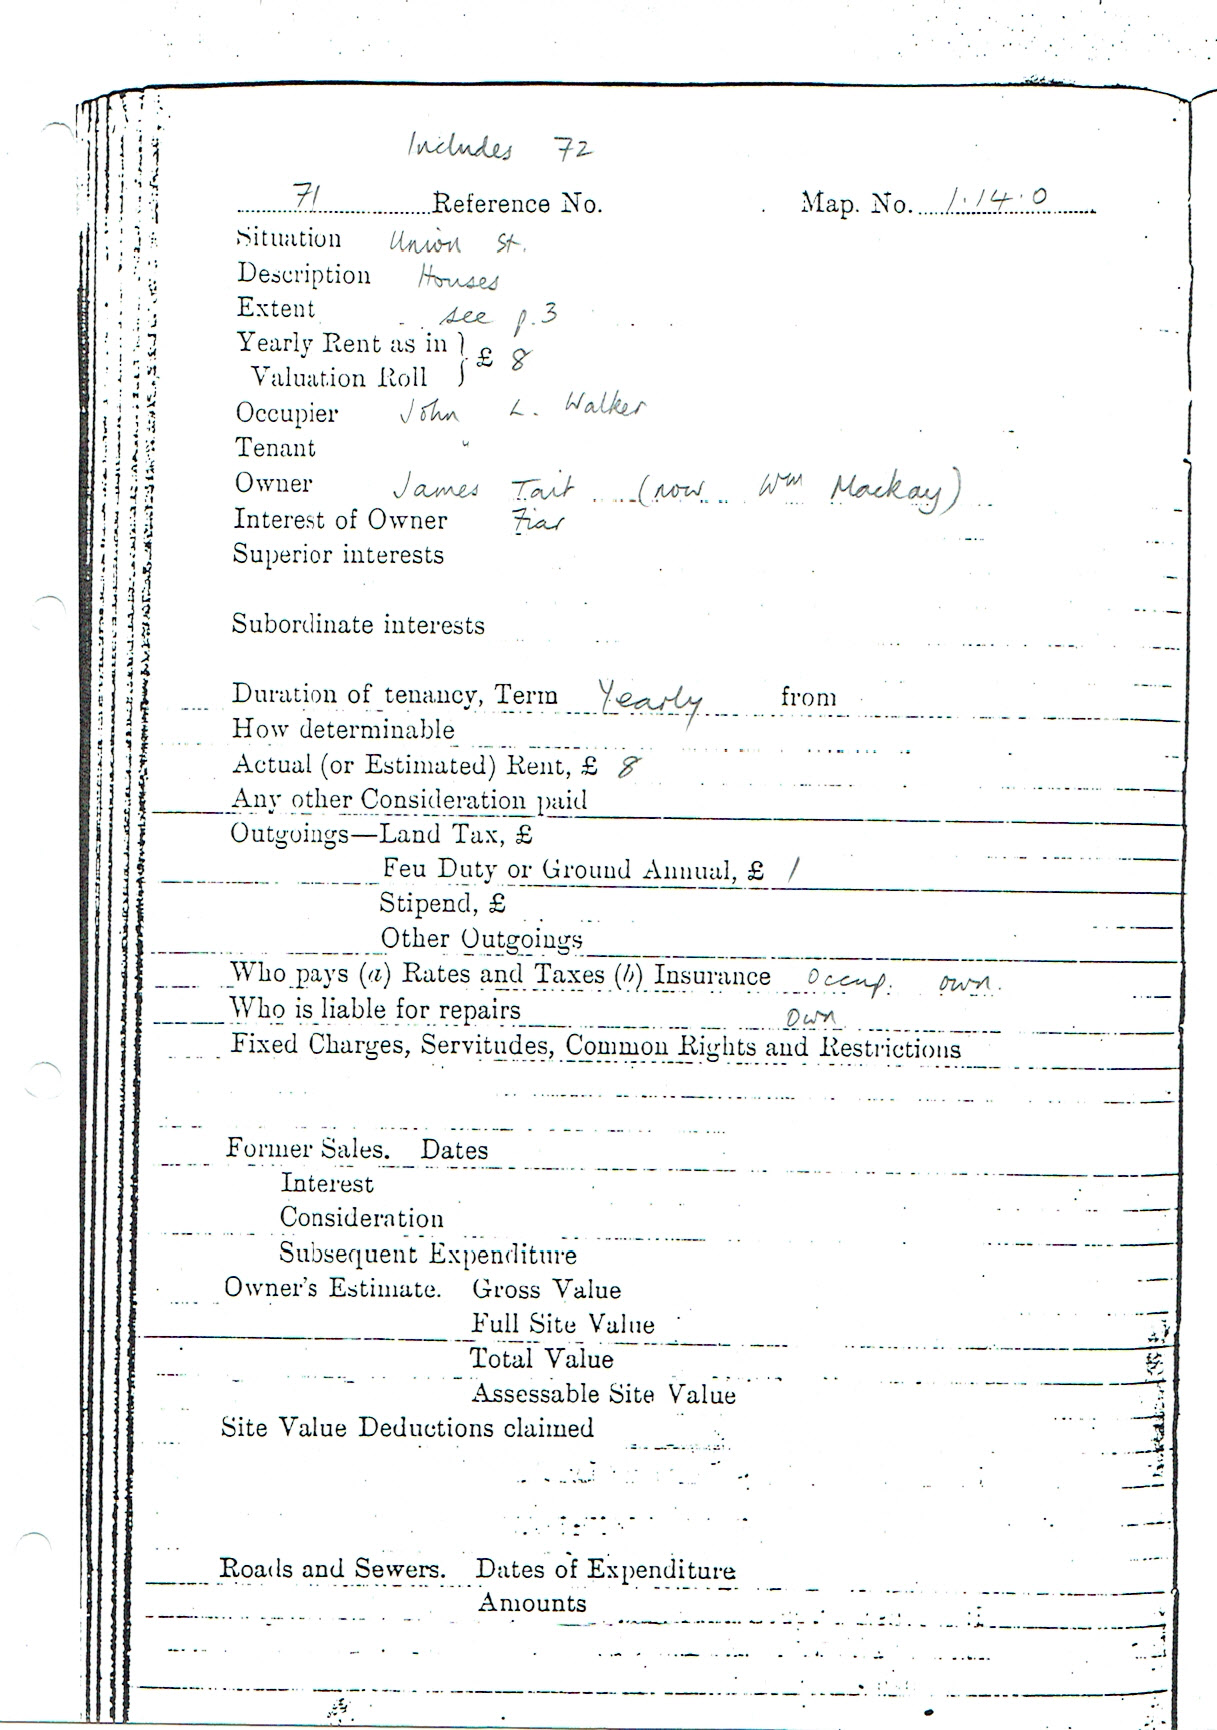 Includes 72
71 Reference No. Map. No. 1.14.0
Situation Union St.
Description Houses
Extent see p.3
Yearly Rent as in } £ 8
Valuation Roll
Occupier John L. Walker
Tenant "
Owner James Tait (now Wm Mackay)
Interest of Owner Fiar
Superior interests
Subordinate interests
Duration of tenancy, Term Yearly from
How determinable
Actual (or Estimated) Rent, £ 8
Any other Consideration paid
Outgoings—Land Tax, £
Feu Duty or Ground Annual, £ 1
Stipend, £
Other Outgoings
Who pays (a) Rates and Taxes (b) Insurance Occup. own.
Who is liable for repairs Own
Fixed Charges, Servitudes, Common Rights and Restrictions
Former Sales. Dates
Interest
Consideration
Subsequent Expenditure
Owner's Estimate. Gross Value
Full Site Value
Total Value
Assessable Site Value
Site Value Deductions claimed
Roads and Sewers. Dates of Expenditure
Amounts